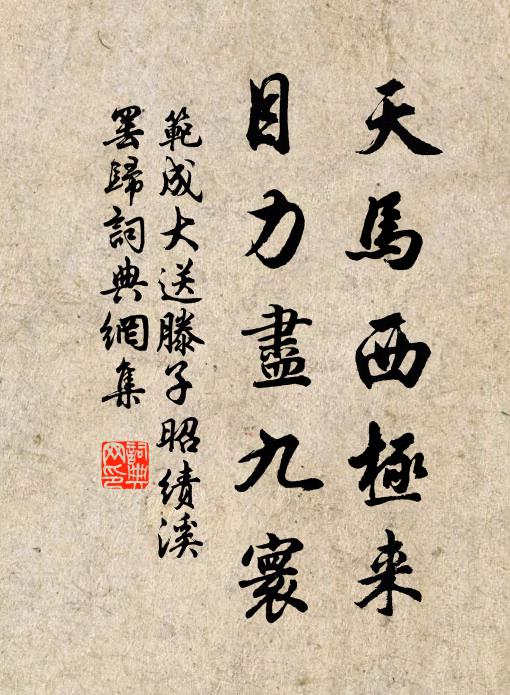 天馬西極来
目力盡九寰
範成大送滕子昭績溪
罢歸詞典網集
詞典网印